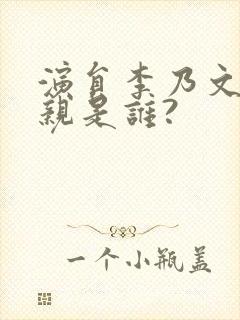 演員李乃文
親是誰?
一个小瓶盖